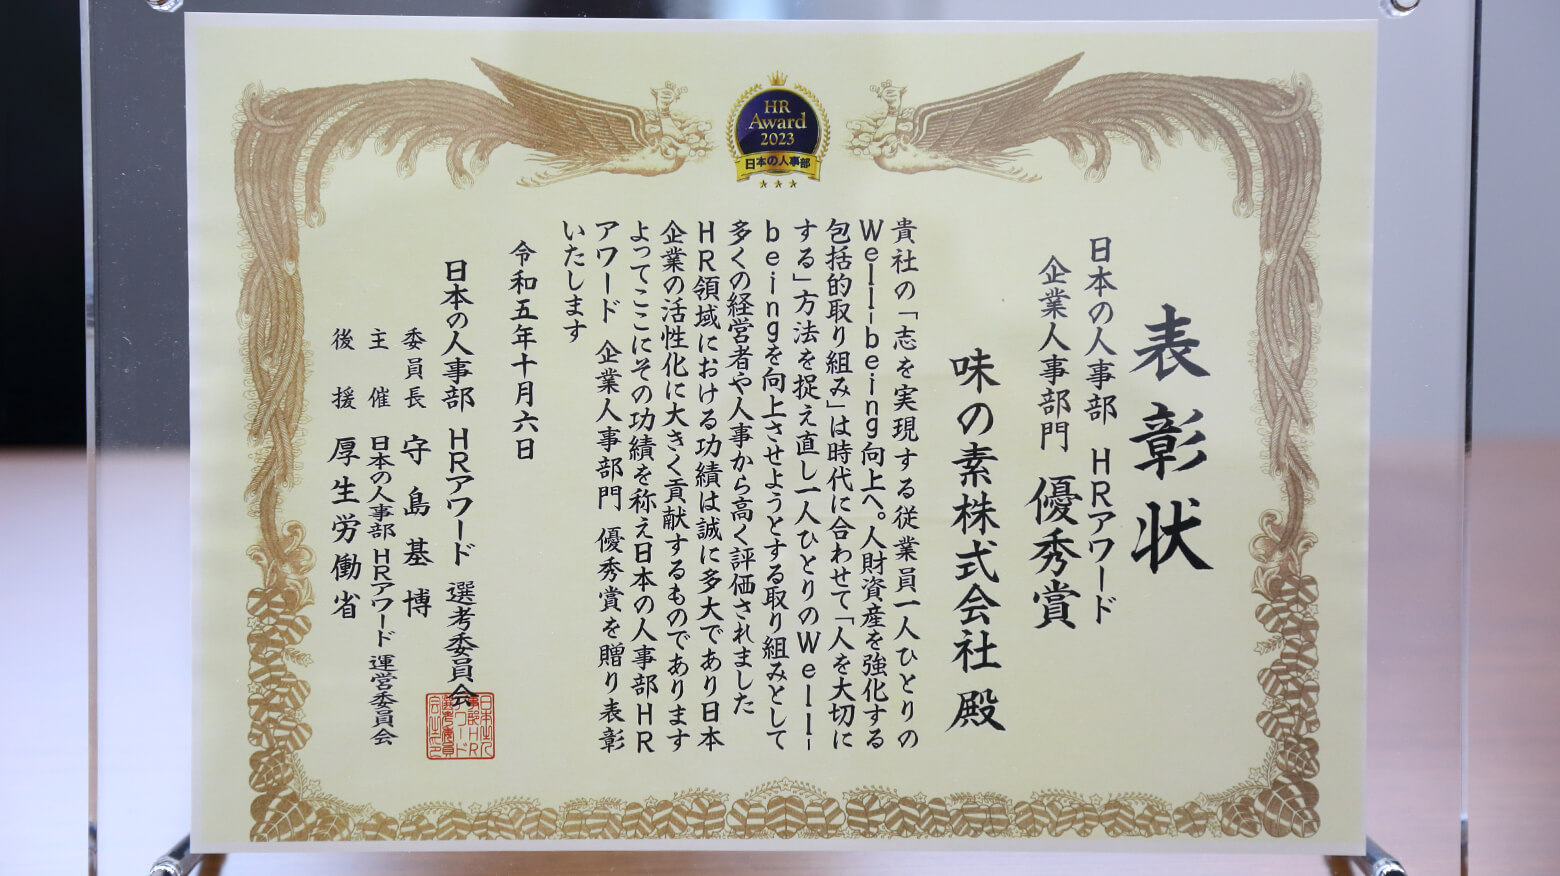 HR
Award
2023
日本の人事部
表彰状
日本の人事部 HRアワード
企業人事部門 優秀賞
味の素株式会社 殿
貴社の「志を実現する従業員一人ひとりの
Well-being向上へ。人財資産を強化する
包括的取り組み」は時代に合わせて「人を大切に
する」方法を捉え直し一人ひとりのWell-
beingを向上させようとする取り組みとして
多くの経営者や人事から高く評価されました
HR領域における功績は誠に多大であり日本
企業の活性化に大きく貢献するものであります
よってここにその功績を称え日本の人事部HR
アワード 企業人事部門 優秀賞を贈り表彰
いたします
令和五年十月六日
日本の人事部 HRアワード 選考委員会
委員長 守島基博
主催 日本の人事部 HRアワード 運営委員会
後援 厚生労働省